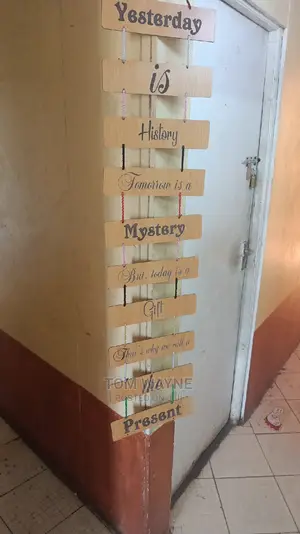 Yesterday
is
History
Tomorrow is a
Mystery
But, today is a
Gift
That's why we call it
the
Present
TOM WAYNE
POSTED ON